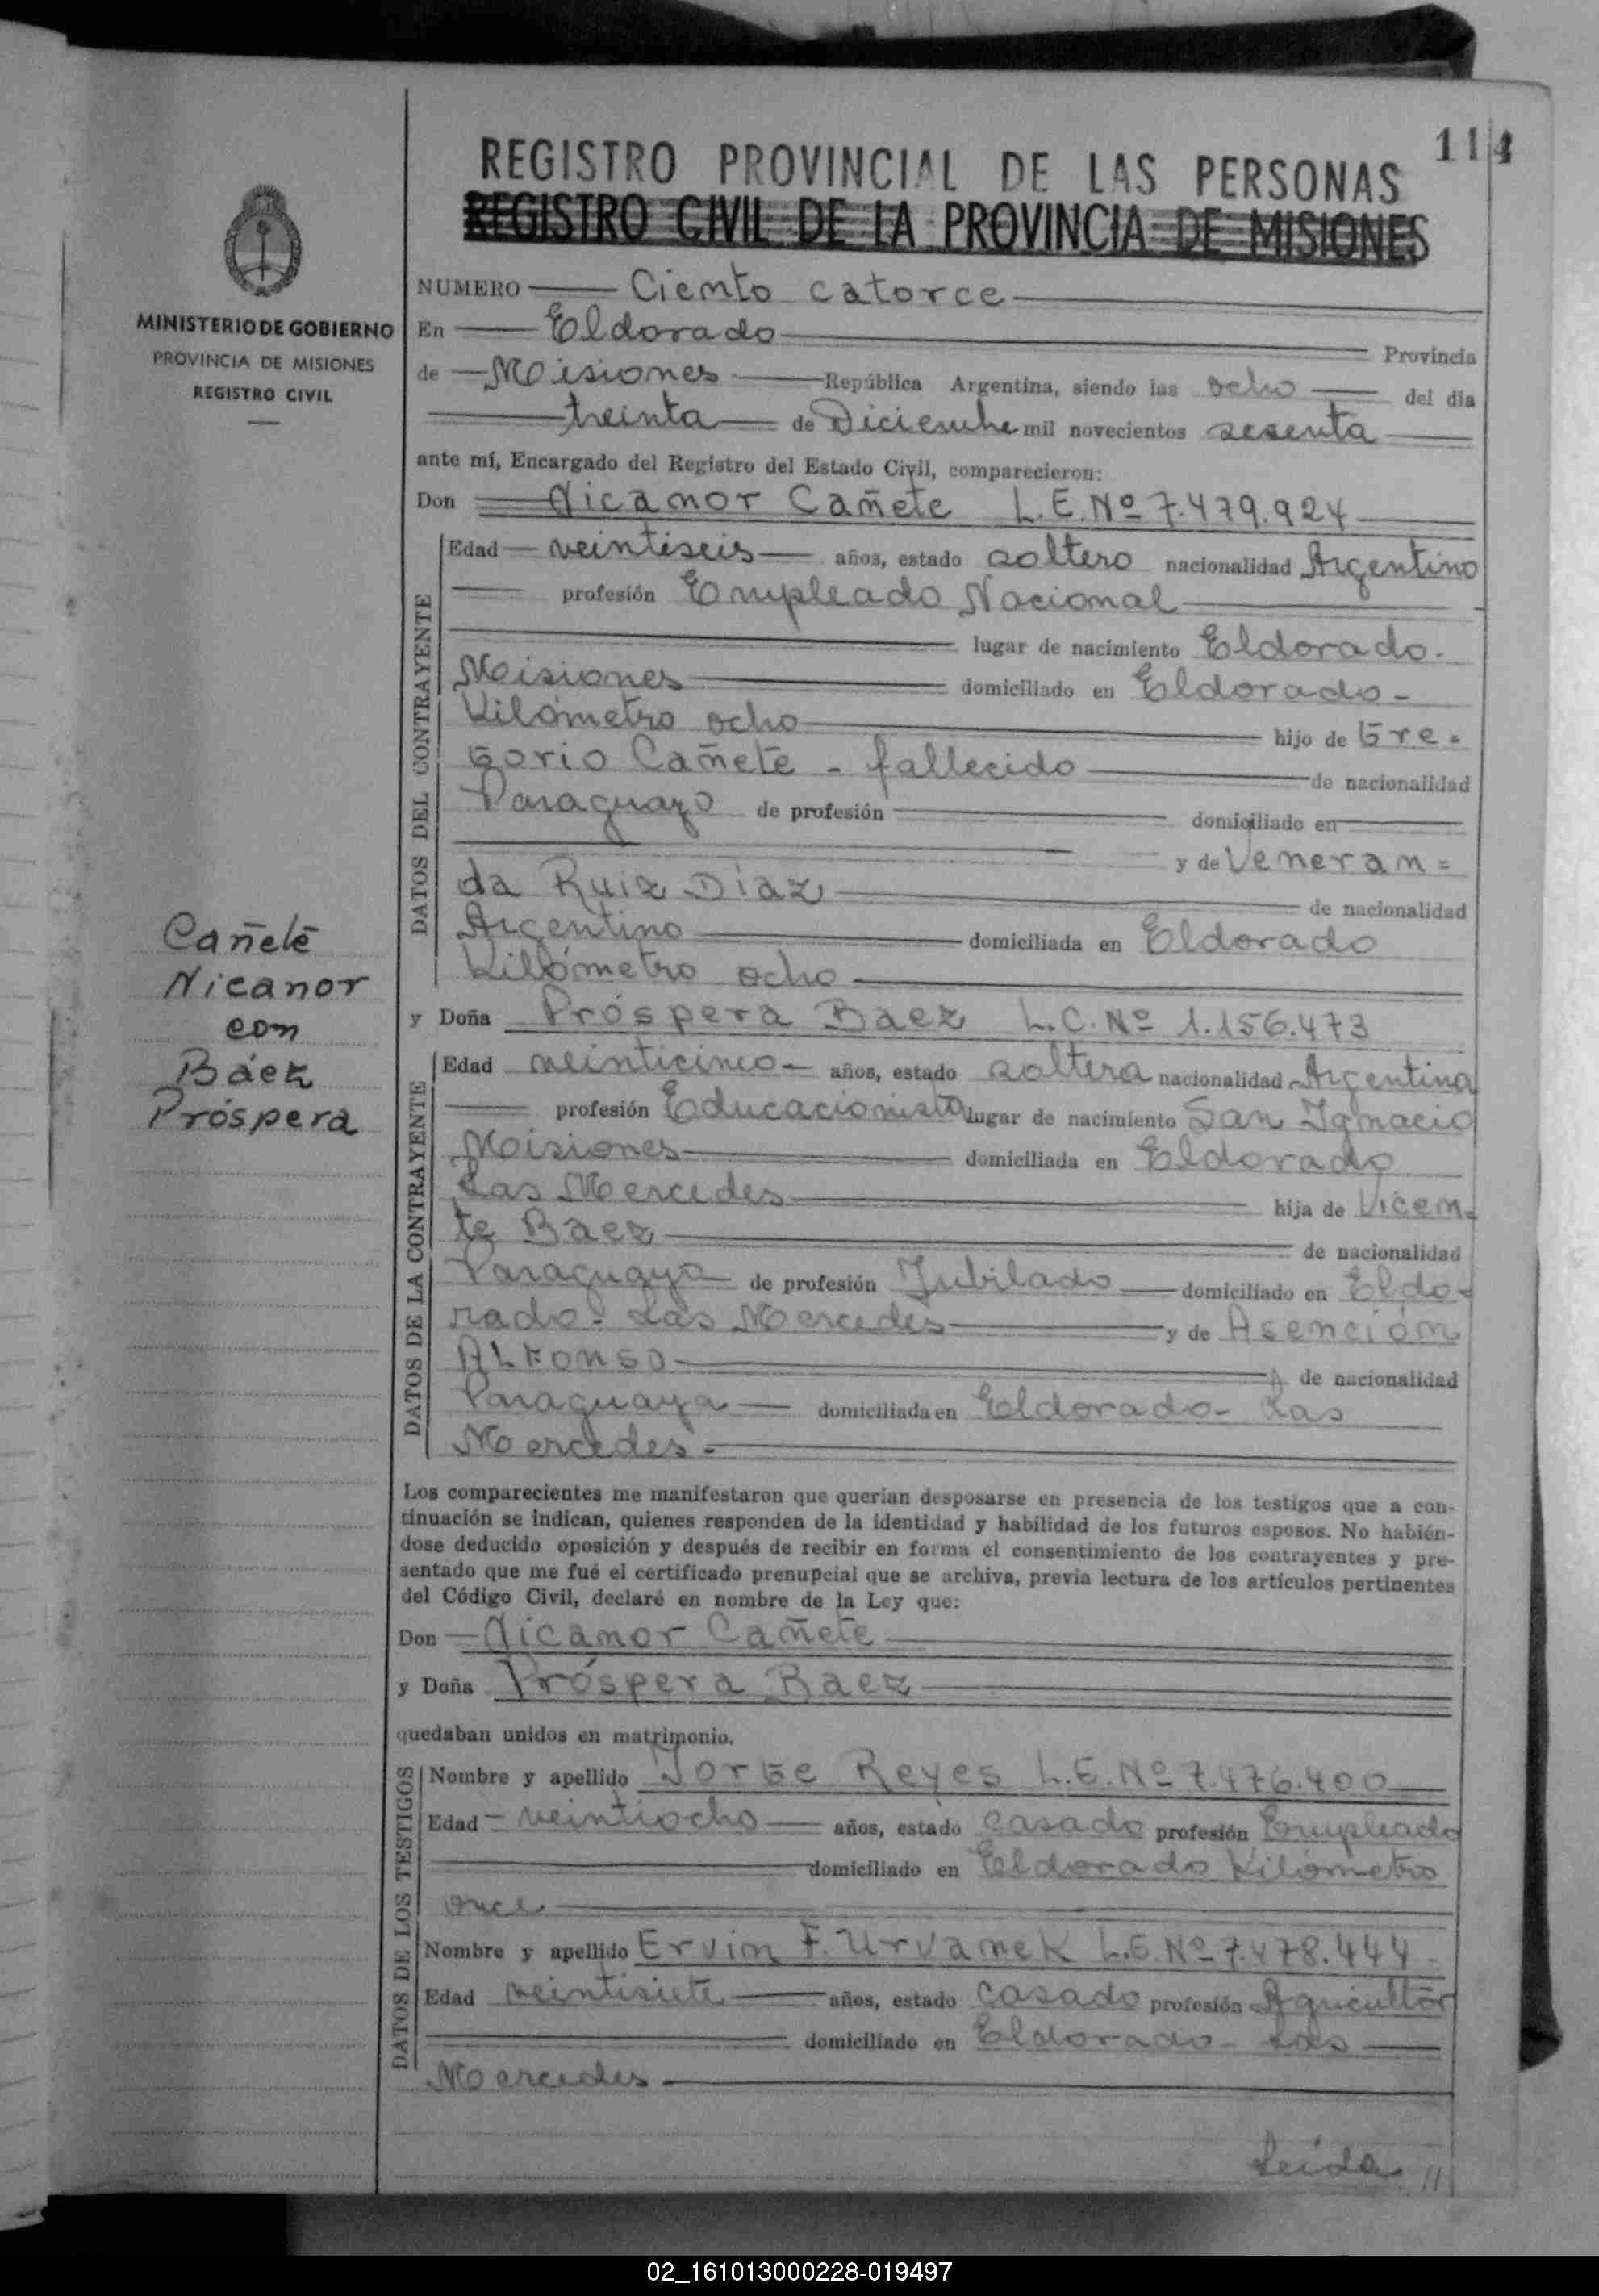 114
REGISTRO PROVINCIAL DE LAS PERSONAS
REGISTRO CIVIL DE LA PROVINCIA DE MISIONES
MINISTERIO DE GOBIERNO
PROVINCIA DE MISIONES
REGISTRO CIVIL
NUMERO Ciento catorce
En Eldorado Provincia
de Misiones República Argentina, siendo las ocho del día
treinta de Diciembre mil novecientos sesenta
ante mí, Encargado del Registro del Estado Civil, comparecieron:
Don Nicanor Cañete L.E. Nº 7.479.924
DATOS DEL CONTRAYENTE
Edad veintiseis años, estado soltero nacionalidad Argentino
profesión Empleado Nacional
lugar de nacimiento Eldorado.
Misiones domiciliado en Eldorado -
Kilómetro ocho hijo de Gre=
gorio Cañete - fallecido de nacionalidad
Paraguayo de profesión domiciliado en
y de Veneran=
da Ruiz Díaz de nacionalidad
Argentino domiciliada en Eldorado
Kilómetro ocho
Cañete
Nicanor
con
Báez
Próspera
y Doña Próspera Baez L.C. Nº 1.156.473
DATOS DE LA CONTRAYENTE
Edad veinticinco años, estado soltera nacionalidad Argentina
profesión Educacionista lugar de nacimiento San Ignacio
Misiones domiciliada en Eldorado
Las Mercedes hija de Vicen=
te Baez de nacionalidad
Paraguayo de profesión Jubilado domiciliado en Eldo-
rado - Las Mercedes y de Asención
Alfonso de nacionalidad
Paraguaya domiciliada en Eldorado - Las
Mercedes -
Los comparecientes me manifestaron que querían desposarse en presencia de los testigos que a con-
tinuación se indican, quienes responden de la identidad y habilidad de los futuros esposos. No habién-
dose deducido oposición y después de recibir en forma el consentimiento de los contrayentes y pre-
sentado que me fué el certificado prenupcial que se archiva, previa lectura de los artículos pertinentes
del Código Civil, declaré en nombre de la Ley que:
Don Nicanor Cañete
y Doña Próspera Baez
quedaban unidos en matrimonio.
DATOS DE LOS TESTIGOS
Nombre y apellido Jorge Reyes L.E. Nº 7.476.400
Edad veintiocho años, estado casado profesión Empleado
domiciliado en Eldorado Kilómetro
once
Nombre y apellido Ervin F. Urvanek L.E. Nº 7.478.444
Edad veintisiete años, estado casado profesión Agricultor
domiciliado en Eldorado - Las
Mercedes
Leída //
02_161013000228-019497